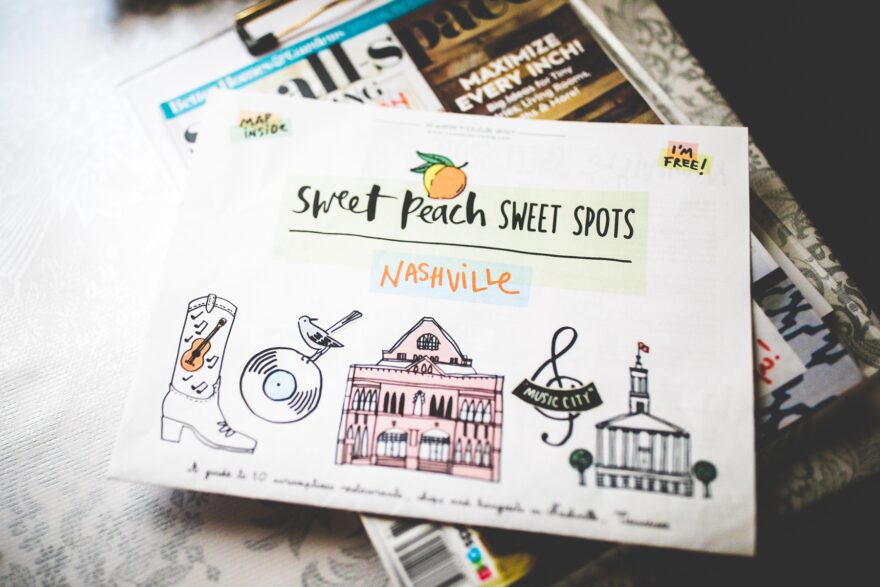 Better Homes & Gardens
MAXIMIZE
EVERY INCH!
Big Ideas for Tiny
Living Rooms,
& More!
MAP
INSIDE
I'M
FREE!
Sweet Peach SWEET SPOTS
NASHVILLE
MUSIC CITY
A guide to 50 scrumptious restaurants, shops and hangouts in Nashville, Tennessee